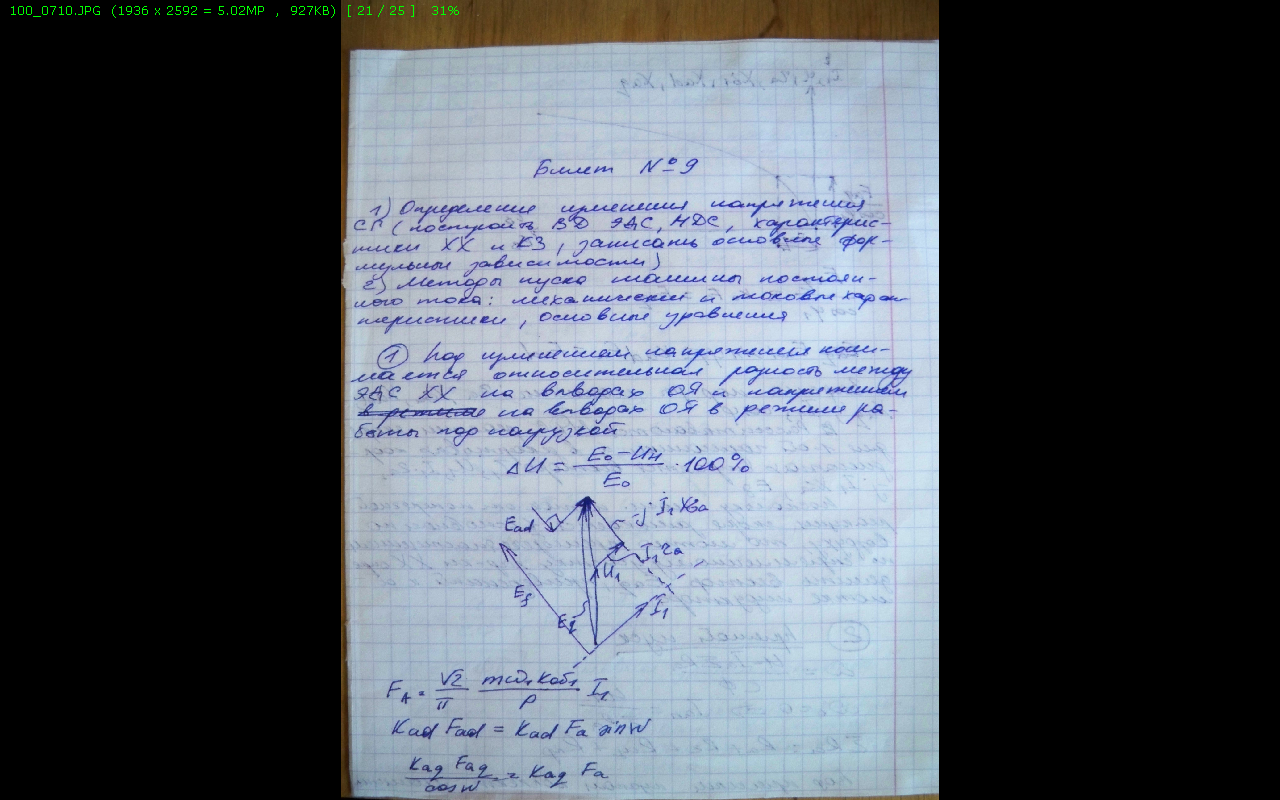 100_0710.JPG (1936 x 2592 = 5.02MP , 927KB) [ 21 / 25 ] 31%
Билет №9
1) Определение изменения напряжения
СГ (построить ВД ЭДС, МДС, характерис-
тики ХХ и КЗ, записать основные фор-
мульные зависимости)
2) Методы пуска машины постоян-
ного тока: механический и токовые харак
теристики, основные уравнения
① Под изменением напряжения пони-
мается относительная разность между
ЭДС ХХ на выводах ОЯ и напряжением
на выводах ОЯ в режиме ра-
боты под нагрузкой
ΔU = (E₀ - Uн)/E₀ · 100%
Ead
j I₁ Xσa
I₁ra
U₁
Ef
I₁
F_A = √2/π mω₁ Kоб₁/p I₁
Kad Fad = Kad Fa sinψ
Kaq Faq/cosψ = Kaq Fa